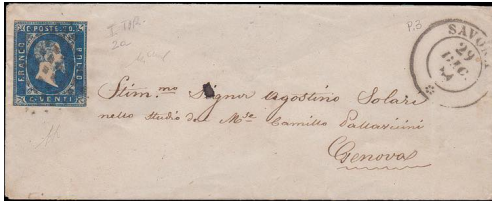 C. POSTE. 20.
FRANCO
BOLLO
C. VENTI
P.3
SAVONA
29
DIC.
54
Stim.mo Signor Agostino Solari
nello studio del M.se Camillo Pallavicini
Genova